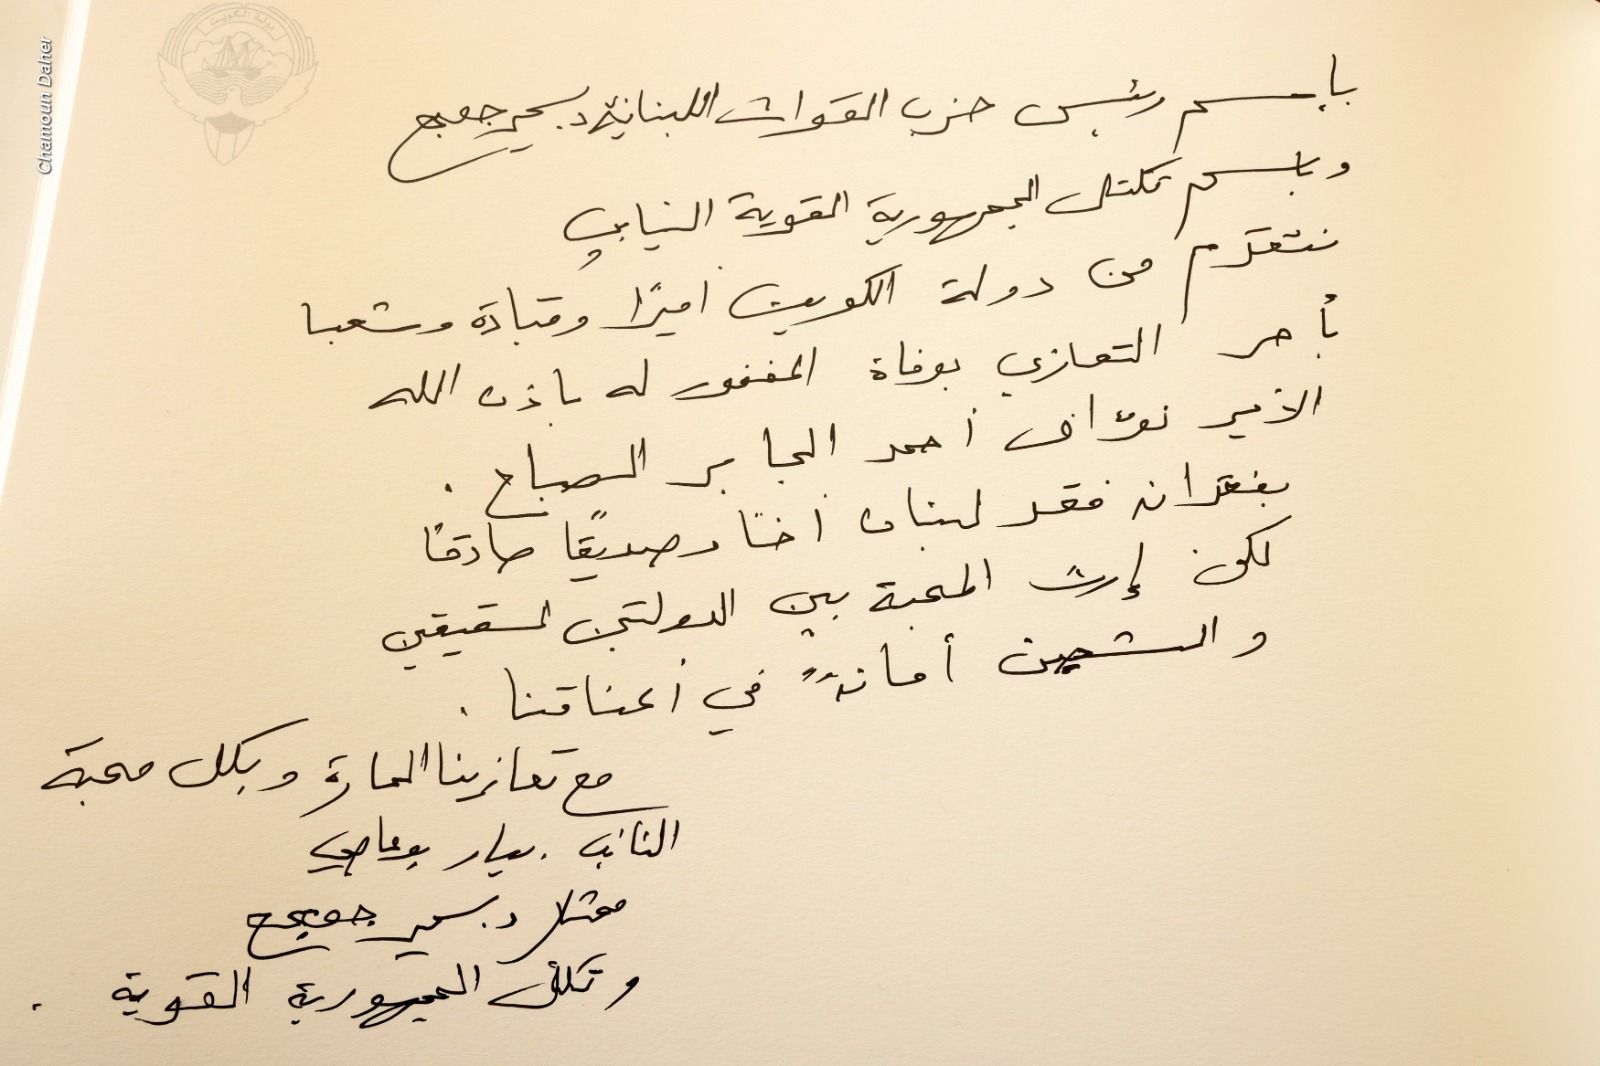 بإسم رئيس حزب القوات اللبنانية د. سمير جعجع
وباسم تكتل الجمهورية القوية النيابي
نتقدّم من دولة الكويت أميرًا وقيادة وشعبا
بأحر التعازي بوفاة المغفور له باذن الله
الأمير نوّاف أحمد الجابر الصباح .
بفقدانه فقد لبنان أخًا وصديقًا صادقًا
لكن إرث المحبة بين الدولتين الشقيقين
والشعبين أمانةً في أعناقنا .
مع تعازينا الحارة وبكل محبة
النائب بيار بوعاصي
ممثلا د. سمير جعجع
وتكتل الجمهورية القوية .
دولة الكويت
Chamoun Daher